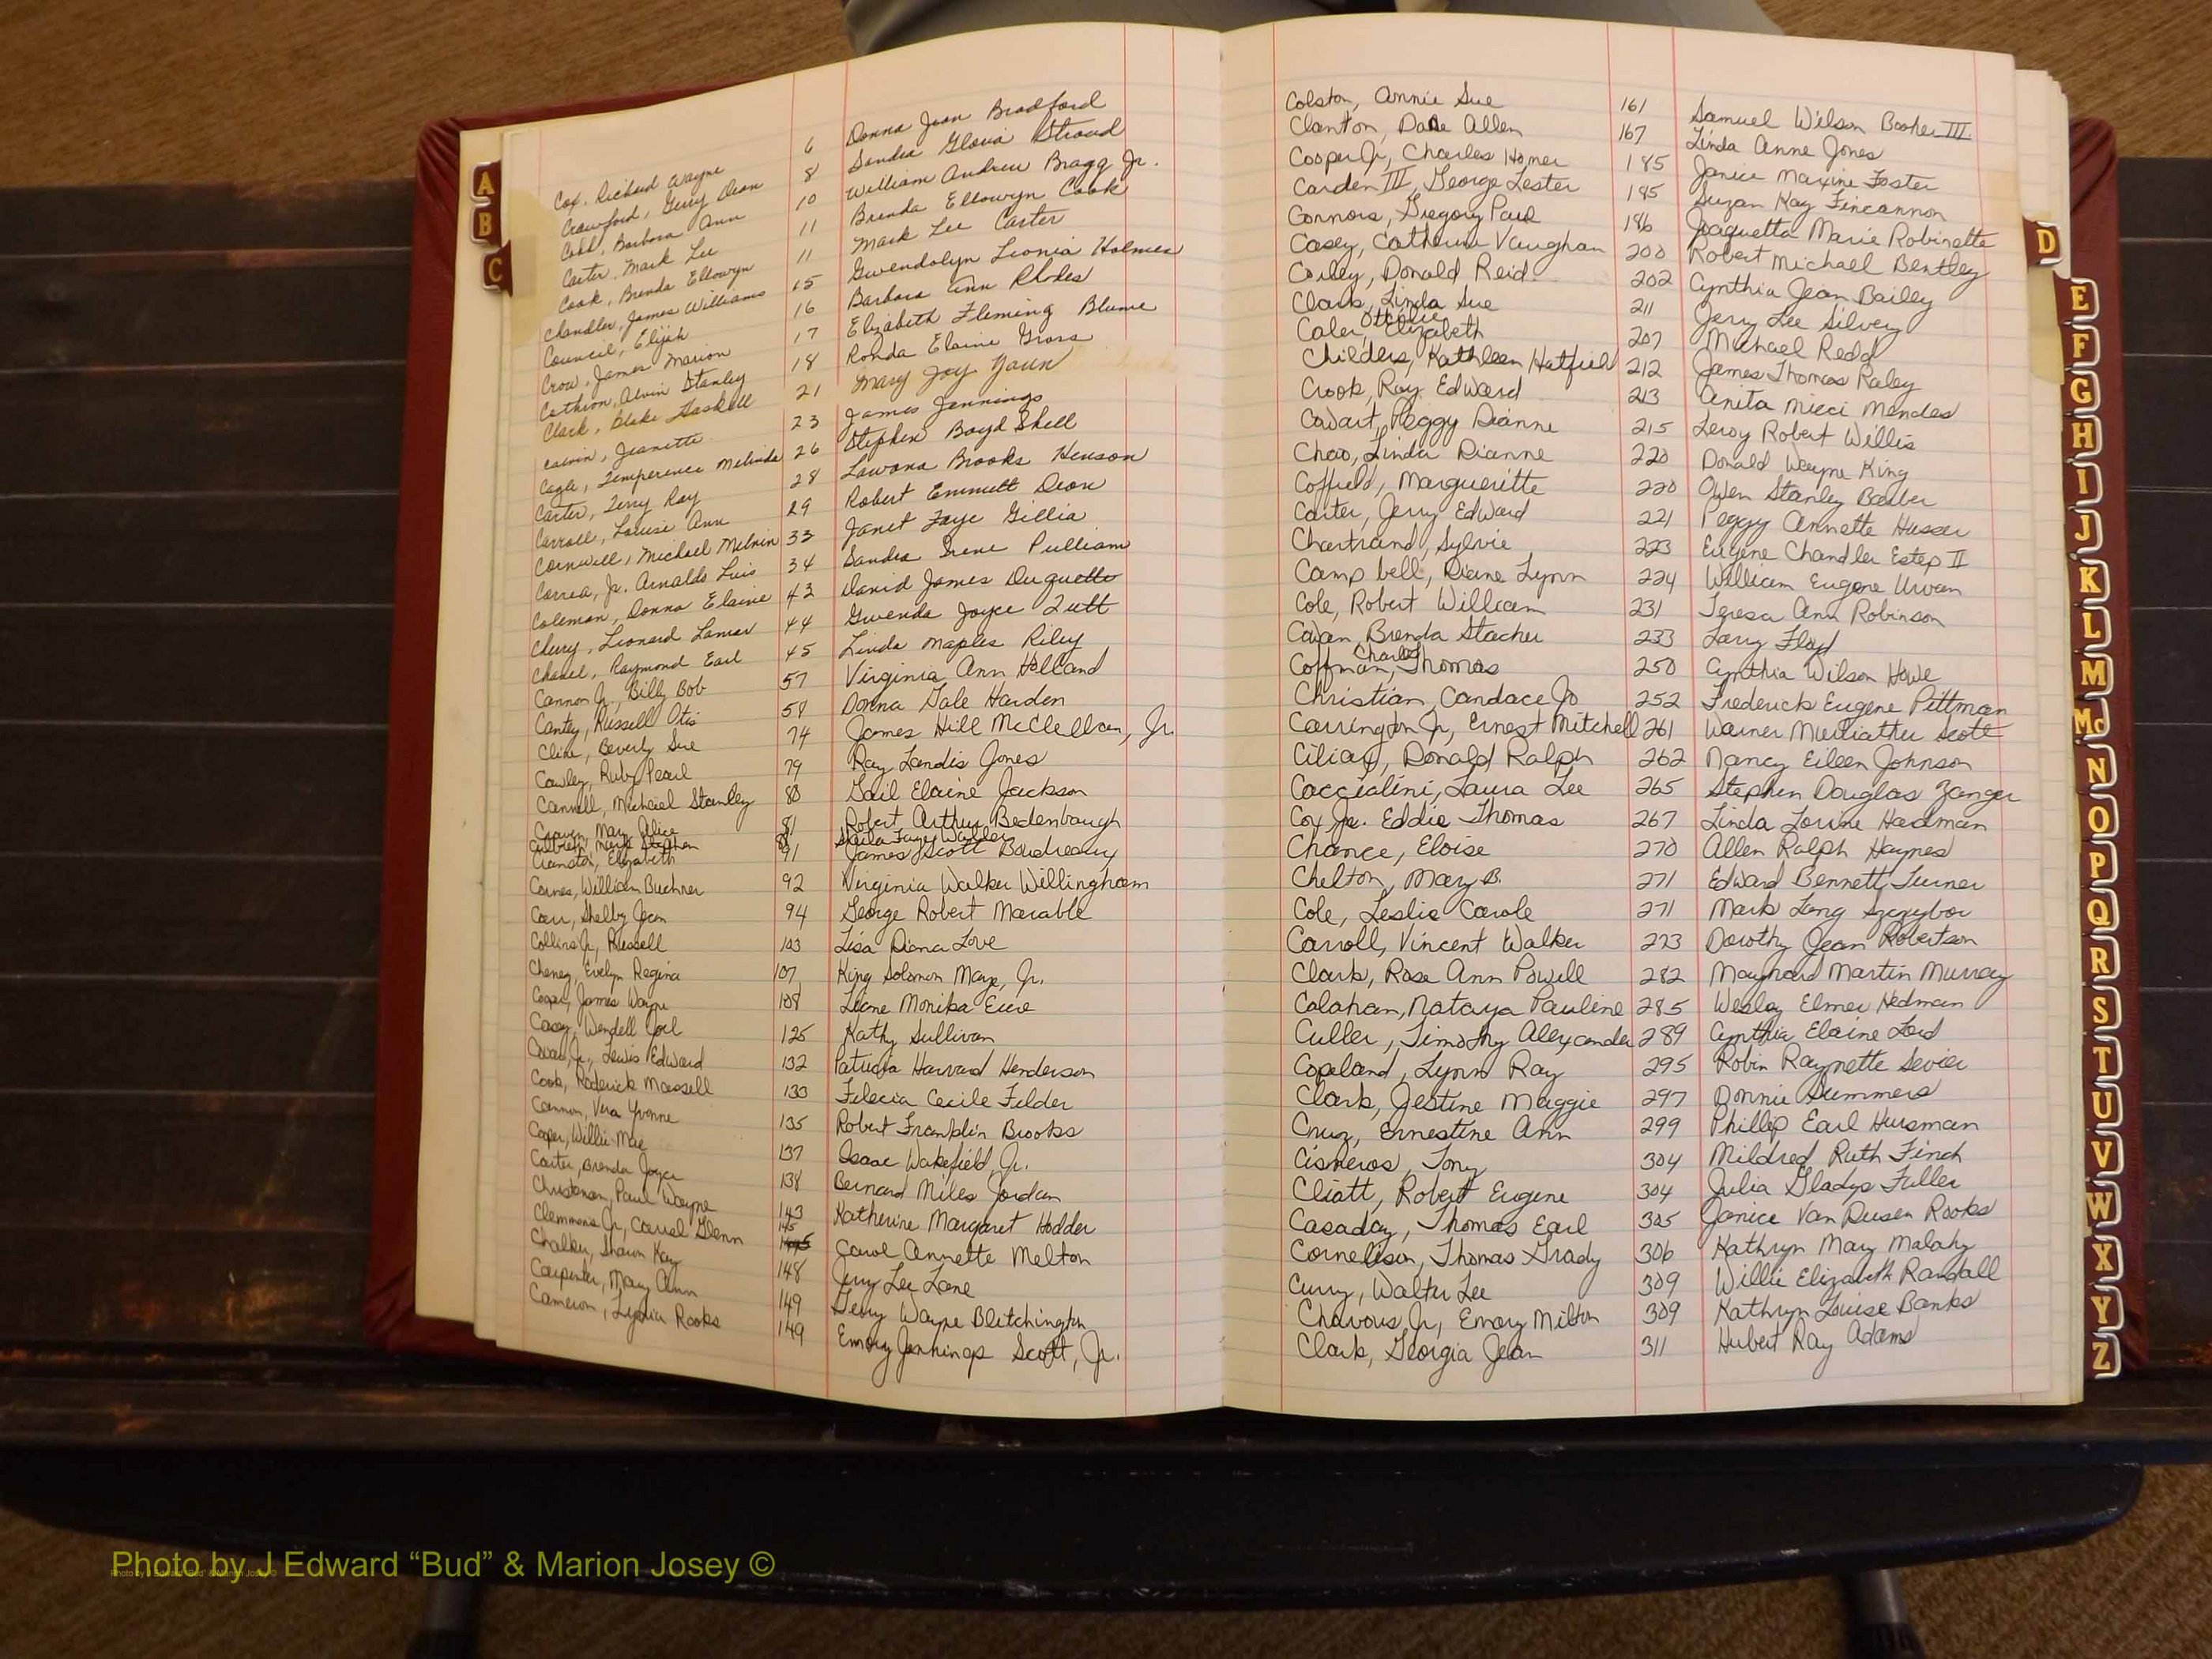 A
B
C
Cox, Richard Wayne 6 Donna Jean Bradford
Crawford, Gerry Dean 8 Sandra Gloria Stroud
Cobb, Barbara Ann 10 William Andrew Bragg Jr.
Carter, Mark Lee 11 Brenda Ellowyn Cook
Cook, Brenda Ellowyn 11 Mark Lee Carter
Chandler, James Williams 15 Gwendolyn Leonia Holmes
Council, Elijah 16 Barbara Ann Rhodes
Crow, James Marion 17 Elizabeth Fleming Blume
Cothron, Alvin Stanley 18 Ronda Elaine Gross
Clark, Blake Haskell 21 Mary Joy Yaun
Calvin, Jeanette 23 James Jennings
Cagle, Temperence Melinda 26 Stephen Boyd Shell
Carter, Terry Ray 28 Lawana Brooks Henson
Carroll, Louise Ann 29 Robert Emmett Dion
Cornwell, Michael Melvin 33 Janet Faye Gillia
Correa, Jr. Arnaldo Luis 34 Sandra Irene Pulliam
Coleman, Donna Elaine 42 David James Duquette
Cherry, Leonard Lamar 44 Gwenda Joyce Zutt
Chavel, Raymond Earl 45 Linda Maples Riley
Cannon Jr, Billy Bob 57 Virginia Ann Holland
Canty, Russell Otis 58 Donna Gale Harden
Cline, Beverly Sue 74 James Hill McClellan, Jr.
Cawley, Ruby Pearl 79 Ray Landis Jones
Cannell, Michael Stanley 80 Gail Elaine Jackson
Craven, Mary Alice 81 Robert Arthur Bedenbaugh
Culbreth, Mark Stephen Sheila Faye Walden
Cranston, Elizabeth 91 James Scott Boudreaux
Carnes, William Buehner 92 Virginia Walker Willingham
Carr, Shelby Jean 94 George Robert Marable
Collins Jr, Russell 103 Lisa Diana Love
Cheney, Evelyn Regina 107 King Solomon Mays, Jr.
Cooper, James Wayne 108 Liane Monika Eure
Casey, Wendell Joel 125 Kathy Sullivan
Cowan Jr., Lewis Edward 132 Patricia Harvard Henderson
Cook, Roderick Maxsell 133 Felecia Cecile Felder
Cannon, Vera Yvonne 135 Robert Franklin Brooks
Cooper, Willie Mae 137 Isaac Wakefield, Jr.
Carter, Brenda Joyce 138 Bernard Miles Jordan
Christensen, Paul Wayne 143 Katherine Margaret Hodder
Clemmons Jr, Carrol Glenn 145 Carol Annette Melton
Chalker, Shawn Kay 148 Jerry Lee Lane
Carpenter, Mary Ann 149 Gerry Wayne Blitchington
Cameron, Lydia Rooks 149 Emory Jennings Scott, Jr.
Colston, Annie Sue 161 Samuel Wilson Booker III.
Clanton, Dane Allen 167 Linda Anne Jones
Cooper Jr, Charles Homer 185 Janice Maxine Foster
Carden III, George Lester 185 Suzan Kay Fincannon
Connors, Gregory Paul 186 Joaquetta Marie Robinette
Casey, Catherine Vaughan 200 Robert Michael Bentley
Corley, Donald Reid 202 Cynthia Jean Bailey
Clark, Linda Sue 211 Jerry Lee Silvey
Caler, Ottolie Elizabeth 207 Michael Redd
Childers, Kathleen Hatfield 212 James Thomas Raley
Crook, Ray Edward 213 Anita Mieci Mendes
Cowart, Peggy Dianne 215 Leroy Robert Willis
Chao, Linda Dianne 220 Donald Wayne King
Coffield, Margueritte 220 Owen Stanley Barber
Carter, Jerry Edward 221 Peggy Annette Husser
Chartrand, Sylvie 223 Eugene Chandler Estep II
Campbell, Diane Lynn 224 William Eugene Urvan
Cole, Robert William 231 Teresa Ann Robinson
Cowan, Brenda Stacher 233 Larry Floyd
Coffman, Charles Thomas 250 Cynthia Wilson Howe
Christian, Candace Jo 252 Frederick Eugene Pittman
Carrington Jr, Ernest Mitchell 261 Warner Murliather Scott
Ciliax, Donald Ralph 262 Nancy Eileen Johnson
Caccialini, Laura Lee 265 Stephen Douglas Zanger
Cox Jr. Eddie Thomas 267 Linda Lorine Hadman
Chance, Eloise 270 Allen Ralph Haynes
Chelton, Mary B. 271 Edward Bennett Turner
Cole, Leslie Carole 271 Mark Lang Szczybor
Carroll, Vincent Walker 273 Dorothy Jean Robertson
Clark, Rose Ann Powell 282 Maynard Martin Murray
Calahan, Nataya Pauline 285 Wesley Elmer Hedman
Culler, Timothy Alexander 289 Cynthia Elaine Lord
Copeland, Lynn Ray 295 Robin Raynette Sevier
Clark, Jestine Maggie 297 Donnie Summers
Cruz, Ernestine Ann 299 Phillip Earl Hursman
Cisneros, Tony 304 Mildred Ruth Finch
Cliatt, Robert Eugene 304 Julia Gladys Fuller
Casaday, Thomas Earl 305 Janice Van Deusen Rooks
Cornelison, Thomas Grady 306 Kathryn Mary Malahy
Curry, Walter Lee 309 Willie Elizabeth Randall
Chavous, Jr, Emory Milton 309 Kathryn Louise Banks
Clark, Georgia Jean 311 Hubert Ray Adams
D
E
F
G
H
I
J
K
L
M
Mc
N
O
P
Q
R
S
T
U
V
W
X
Y
Z
Photo by J Edward “Bud” & Marion Josey ©